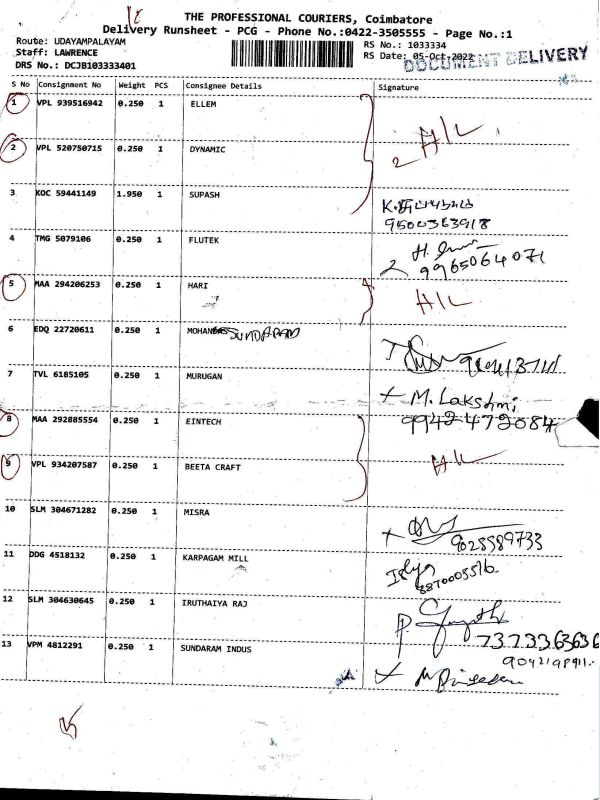 THE PROFESSIONAL COURIERS, Coimbatore
Delivery Runsheet - PCG - Phone No.:0422-3505555 - Page No.:1
Route: UDAYAMPALAYAM
Staff: LAWRENCE
DRS No.: DCJB103333401
RS No.: 1033334
RS Date: 05-Oct-2022
DOCUMENT DELIVERY
S No Consignment No Weight PCS Consignee Details Signature
1 VPL 939516942 0.250 1 ELLEM
2 VPL 520750715 0.250 1 DYNAMIC
3 KOC 59441149 1.950 1 SUPASH
9500363918
4 TMG 5079106 0.250 1 FLUTEK
9965064071
5 MAA 294206253 0.250 1 HARI
6 EDQ 22720611 0.250 1 SUNDARAM
7 TVL 6185105 0.250 1 MURUGAN
M. Lakshmi
9942472084
8 MAA 292885554 0.250 1 EINTECH
9 VPL 934207587 0.250 1 BEETA CRAFT
10 SLM 304671282 0.250 1 MISRA
11 DDG 4518132 0.250 1 KARPAGAM MILL
12 SLM 304630645 0.250 1 IRUTHAIYA RAJ
7373363636
13 VPM 4812291 0.250 1 SUNDARAM INDUS